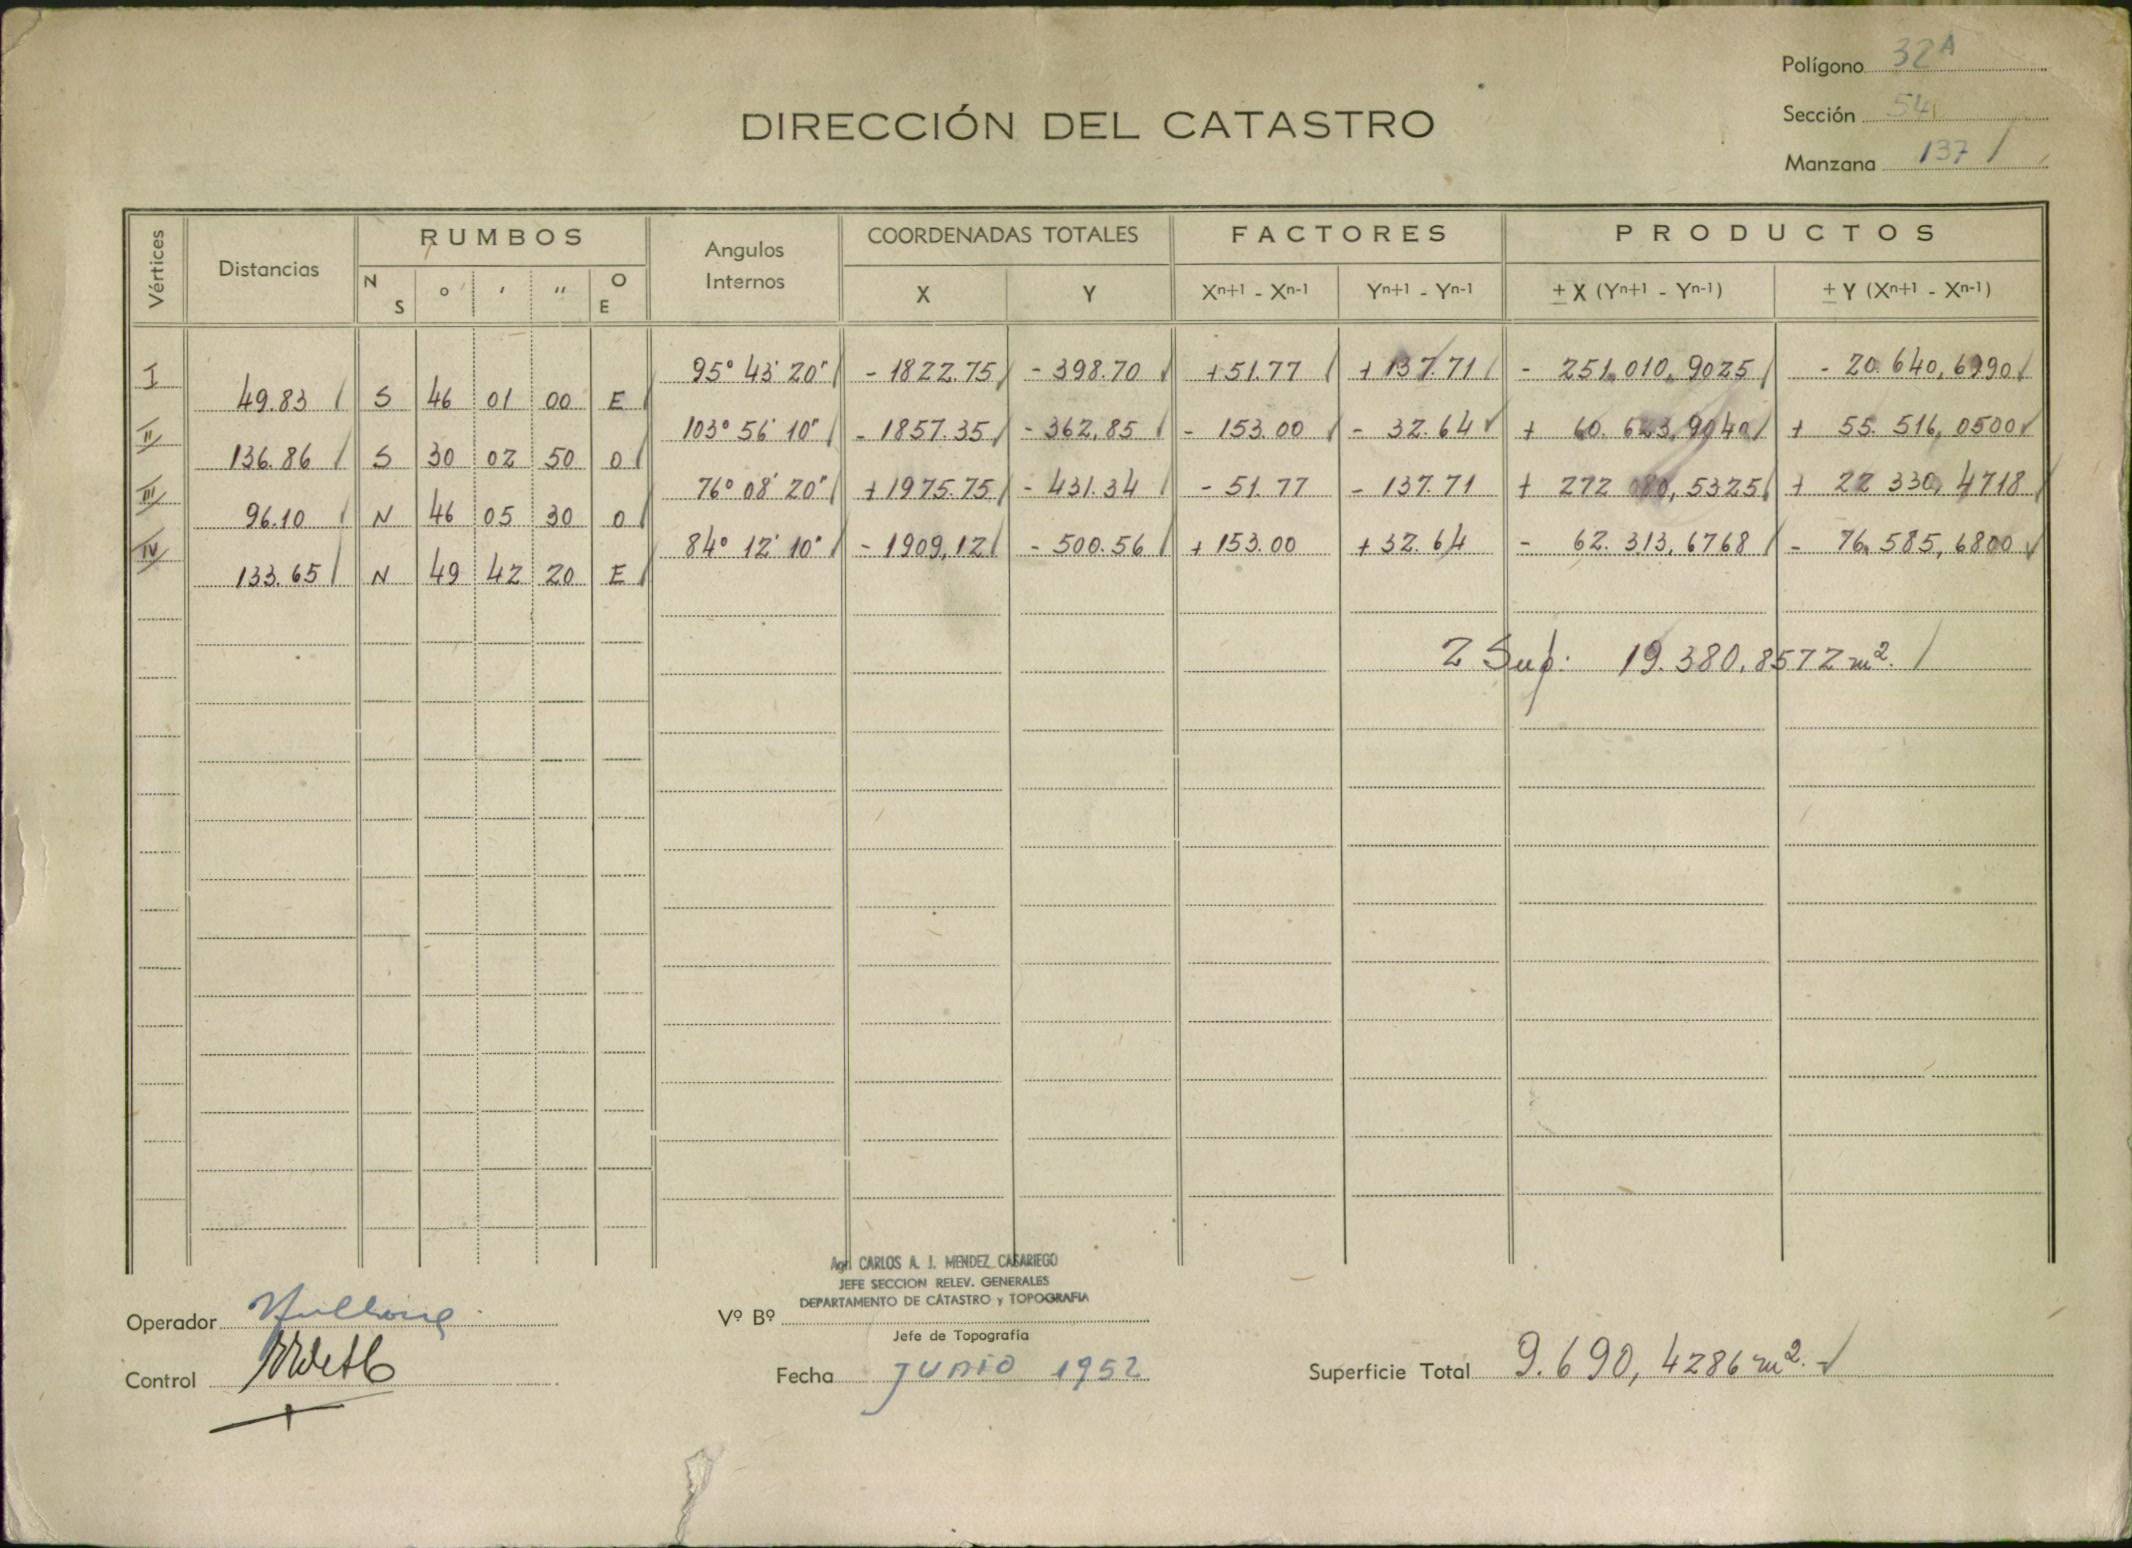 Polígono 32A
Sección 54
Manzana 137
DIRECCIÓN DEL CATASTRO
Vértices Distancias RUMBOS Angulos Internos COORDENADAS TOTALES FACTORES PRODUCTOS
N S ° ' '' O E X Y Xn+1 - Xn-1 Yn+1 - Yn-1 ± X (Yn+1 - Yn-1) ± Y (Xn+1 - Xn-1)
I 95° 43' 20" - 1822.75 - 398.70 +51.77 +137.71 - 251.010,9025 - 20.640,6990
49.83 S 46 01 00 E
II 103° 56' 10" - 1857.35 - 362,85 - 153.00 - 32.64 + 60.623,9040 + 55.516,0500
136.86 S 30 02 50 O
III 76° 08' 20" + 1975.75 - 431.34 - 51.77 - 137.71 + 272 080,5325 + 22 330,4718
96.10 N 46 05 30 O
IV 84° 12' 10" - 1909,12 - 500.56 + 153.00 + 32.64 - 62.313,6768 - 76.585,6800
133.65 N 49 42 20 E
2 Sup: 19.380,8572 m².
Agr. CARLOS A. J. MENDEZ CASARIEGO
JEFE SECCION RELEV. GENERALES
DEPARTAMENTO DE CATASTRO y TOPOGRAFIA
Operador
Vº Bº
Jefe de Topografía
Control
Fecha Junio 1952
Superficie Total 9.690,4286 m².